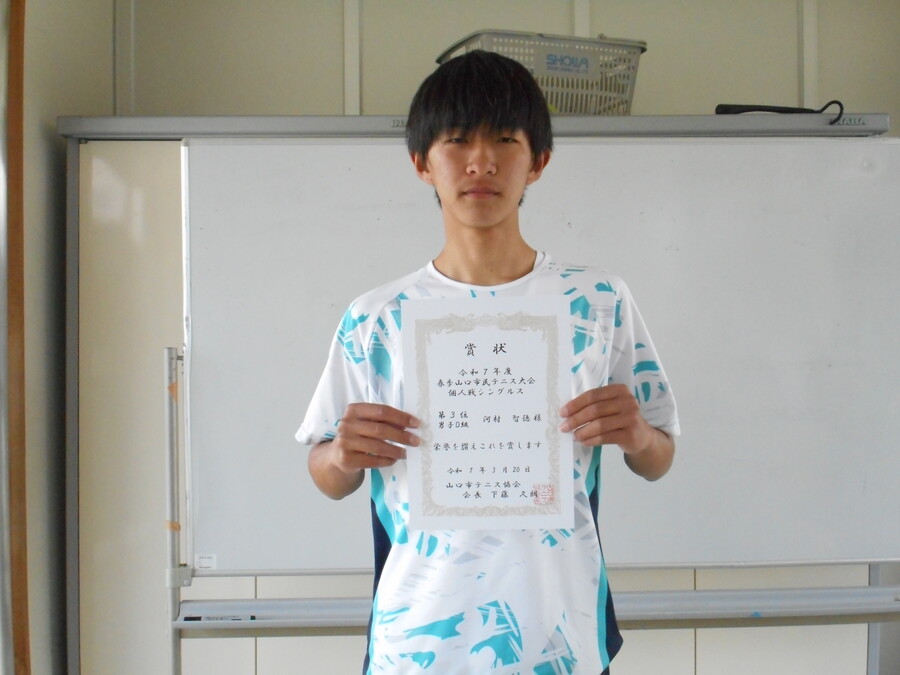 SHOWA
賞状
令和7年度
春季山口市民テニス大会
個人戦シングルス
第3位 河村 智徳様
男子D組
栄誉を讃えこれを賞します
令和7年3月20日
山口市テニス協会
会長 下藤 久